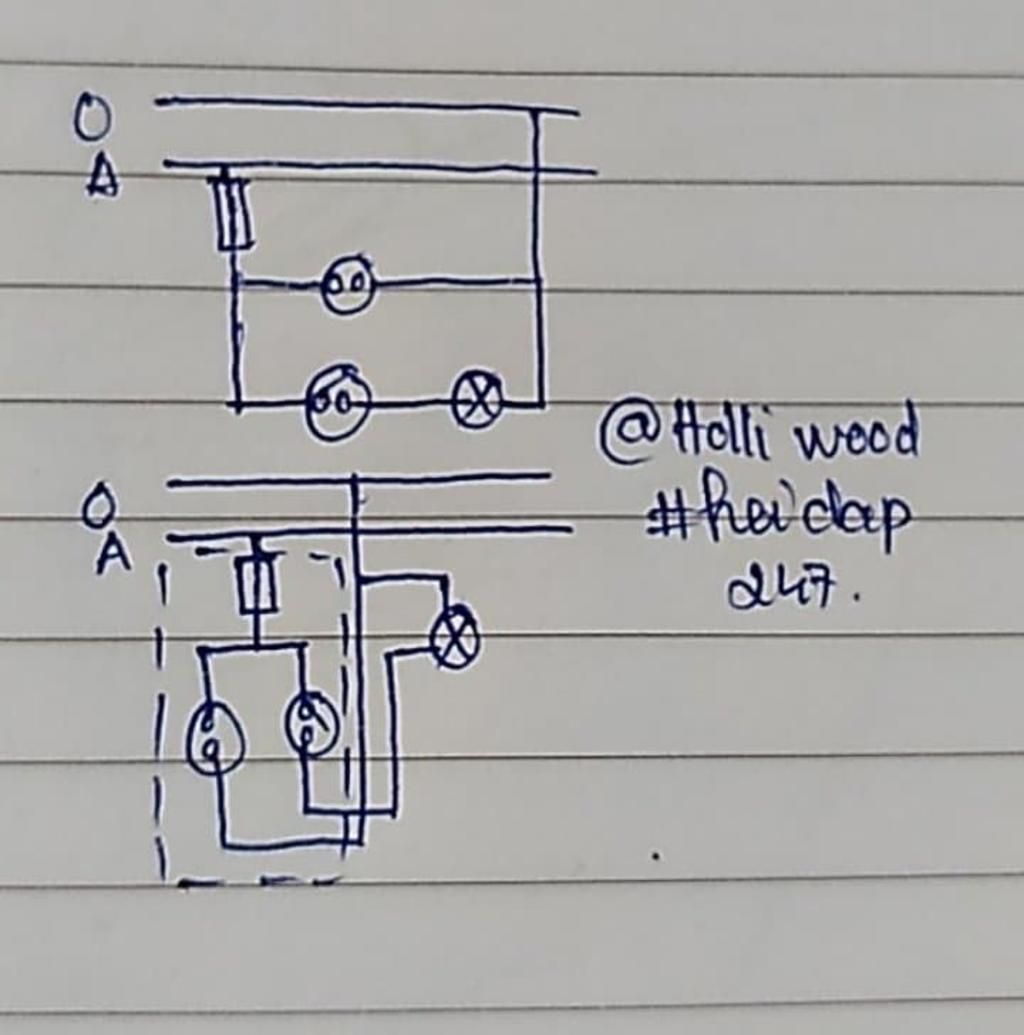 O
A
@Holli wood
#heiclap
247.
O
A